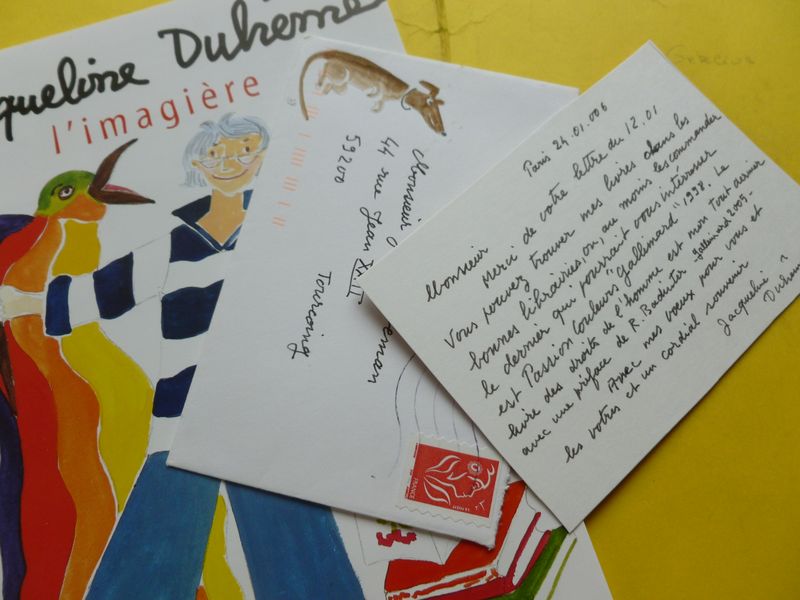 queline Duheme
l'imagière
Monsieur
44 rue Jean XXIII
59200
Tourcoing
FRANCE
Paris 24.01.006
Monsieur
Merci de votre lettre du 12.01
Vous pouvez trouver mes livres dans les
bonnes librairies, ou, au moins les commander
le dernier qui pourrait vous intéresser
est "Passion Couleurs" Gallimard 1998. Le
livre des droits de l'homme est mon tout dernier
avec une préface de R. Badinter Gallimard 2005.
Avec mes voeux pour vous et
les votres et un cordial souvenir
Jacqueline
Duheme